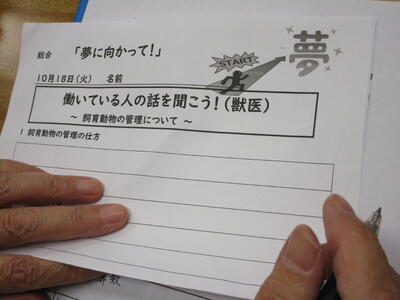 総合 「夢に向かって!」
START 夢
10月18日(火) 名前
働いている人の話を聞こう!(獣医)
~ 飼育動物の管理について ~
1 飼育動物の管理の仕方